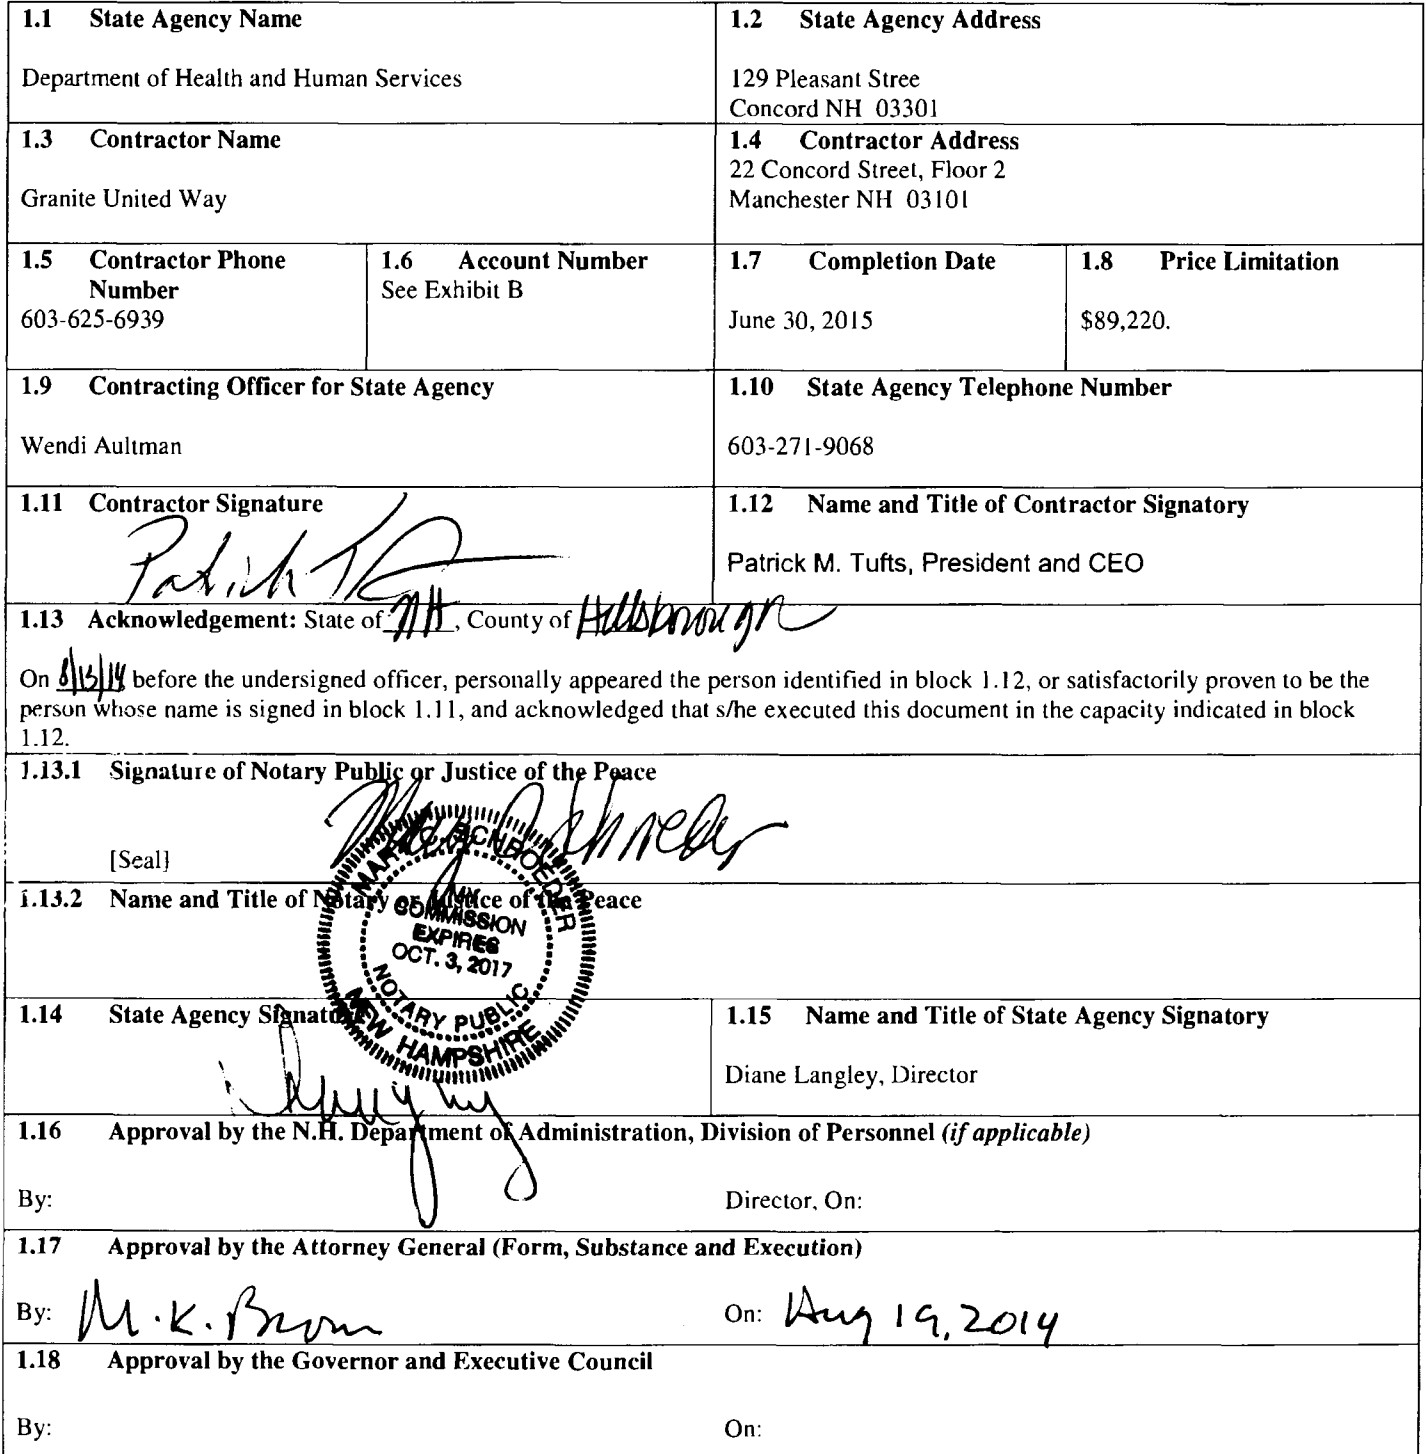 1.1 State Agency Name
Department of Health and Human Services
1.2 State Agency Address
129 Pleasant Stree
Concord NH 03301
1.3 Contractor Name
Granite United Way
1.4 Contractor Address
22 Concord Street, Floor 2
Manchester NH 03101
1.5 Contractor Phone
Number
603-625-6939
1.6 Account Number
See Exhibit B
1.7 Completion Date
June 30, 2015
1.8 Price Limitation
$89,220.
1.9 Contracting Officer for State Agency
Wendi Aultman
1.10 State Agency Telephone Number
603-271-9068
1.11 Contractor Signature
Patrick
1.12 Name and Title of Contractor Signatory
Patrick M. Tufts, President and CEO
1.13 Acknowledgement: State of NH, County of Hillsborough
On 8/13/14 before the undersigned officer, personally appeared the person identified in block 1.12, or satisfactorily proven to be the
person whose name is signed in block 1.11, and acknowledged that s/he executed this document in the capacity indicated in block
1.12.
1.13.1 Signature of Notary Public or Justice of the Peace
[Seal]
MARY C. SCHROEDER
MY
COMMISSION
EXPIRES
OCT. 3, 2017
NOTARY PUBLIC
NEW HAMPSHIRE
1.13.2 Name and Title of Notary or Justice of the Peace
1.14 State Agency Signature
1.15 Name and Title of State Agency Signatory
Diane Langley, Director
1.16 Approval by the N.H. Department of Administration, Division of Personnel (if applicable)
By:
Director, On:
1.17 Approval by the Attorney General (Form, Substance and Execution)
By: M.K. Brown
On: Aug 19, 2014
1.18 Approval by the Governor and Executive Council
By:
On: